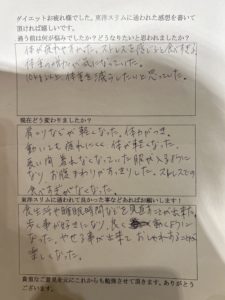 ダイエットお疲れ様でした。東洋スリムに通われた感想を書いて
頂ければ嬉しいです。
通う前は何が悩みでしたか?どうなりたいと思われましたか?
体が疲れやすかった。ストレスを感じると食べすぎる
体重の増加が気になっていた。
10kg以上、体重を減らしたいと思っていた。
現在どう変わりましたか?
肩こりなどが軽くなった。体力がつき、
動いても疲れにくく、体が軽くなった。
長い間着れなくなっていた服が入るように
なり、お腹まわりがすっきりした。ストレスでの
食べすぎがなくなった。
東洋スリムに通われて良かった事などあればお願いします!
食生活や睡眠時間などを見直すことが出来た。
歩く事が好きになり、良く動くように
なった。やせる事が出来ておしゃれすることが
楽しくなった。
貴重なご意見を元にこれからも勉強させて頂きます。ありがとう
ございます。